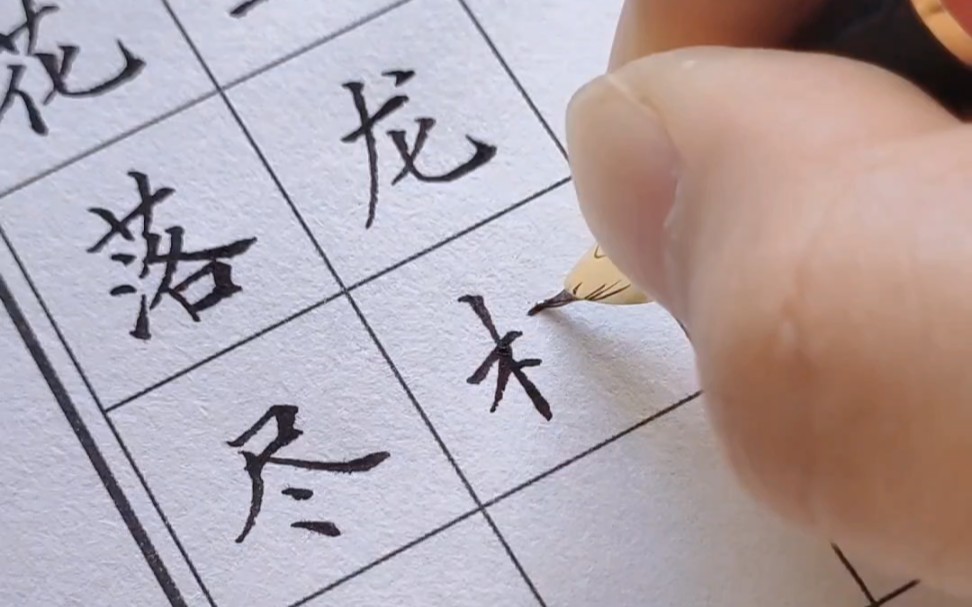 花落尽
龙木